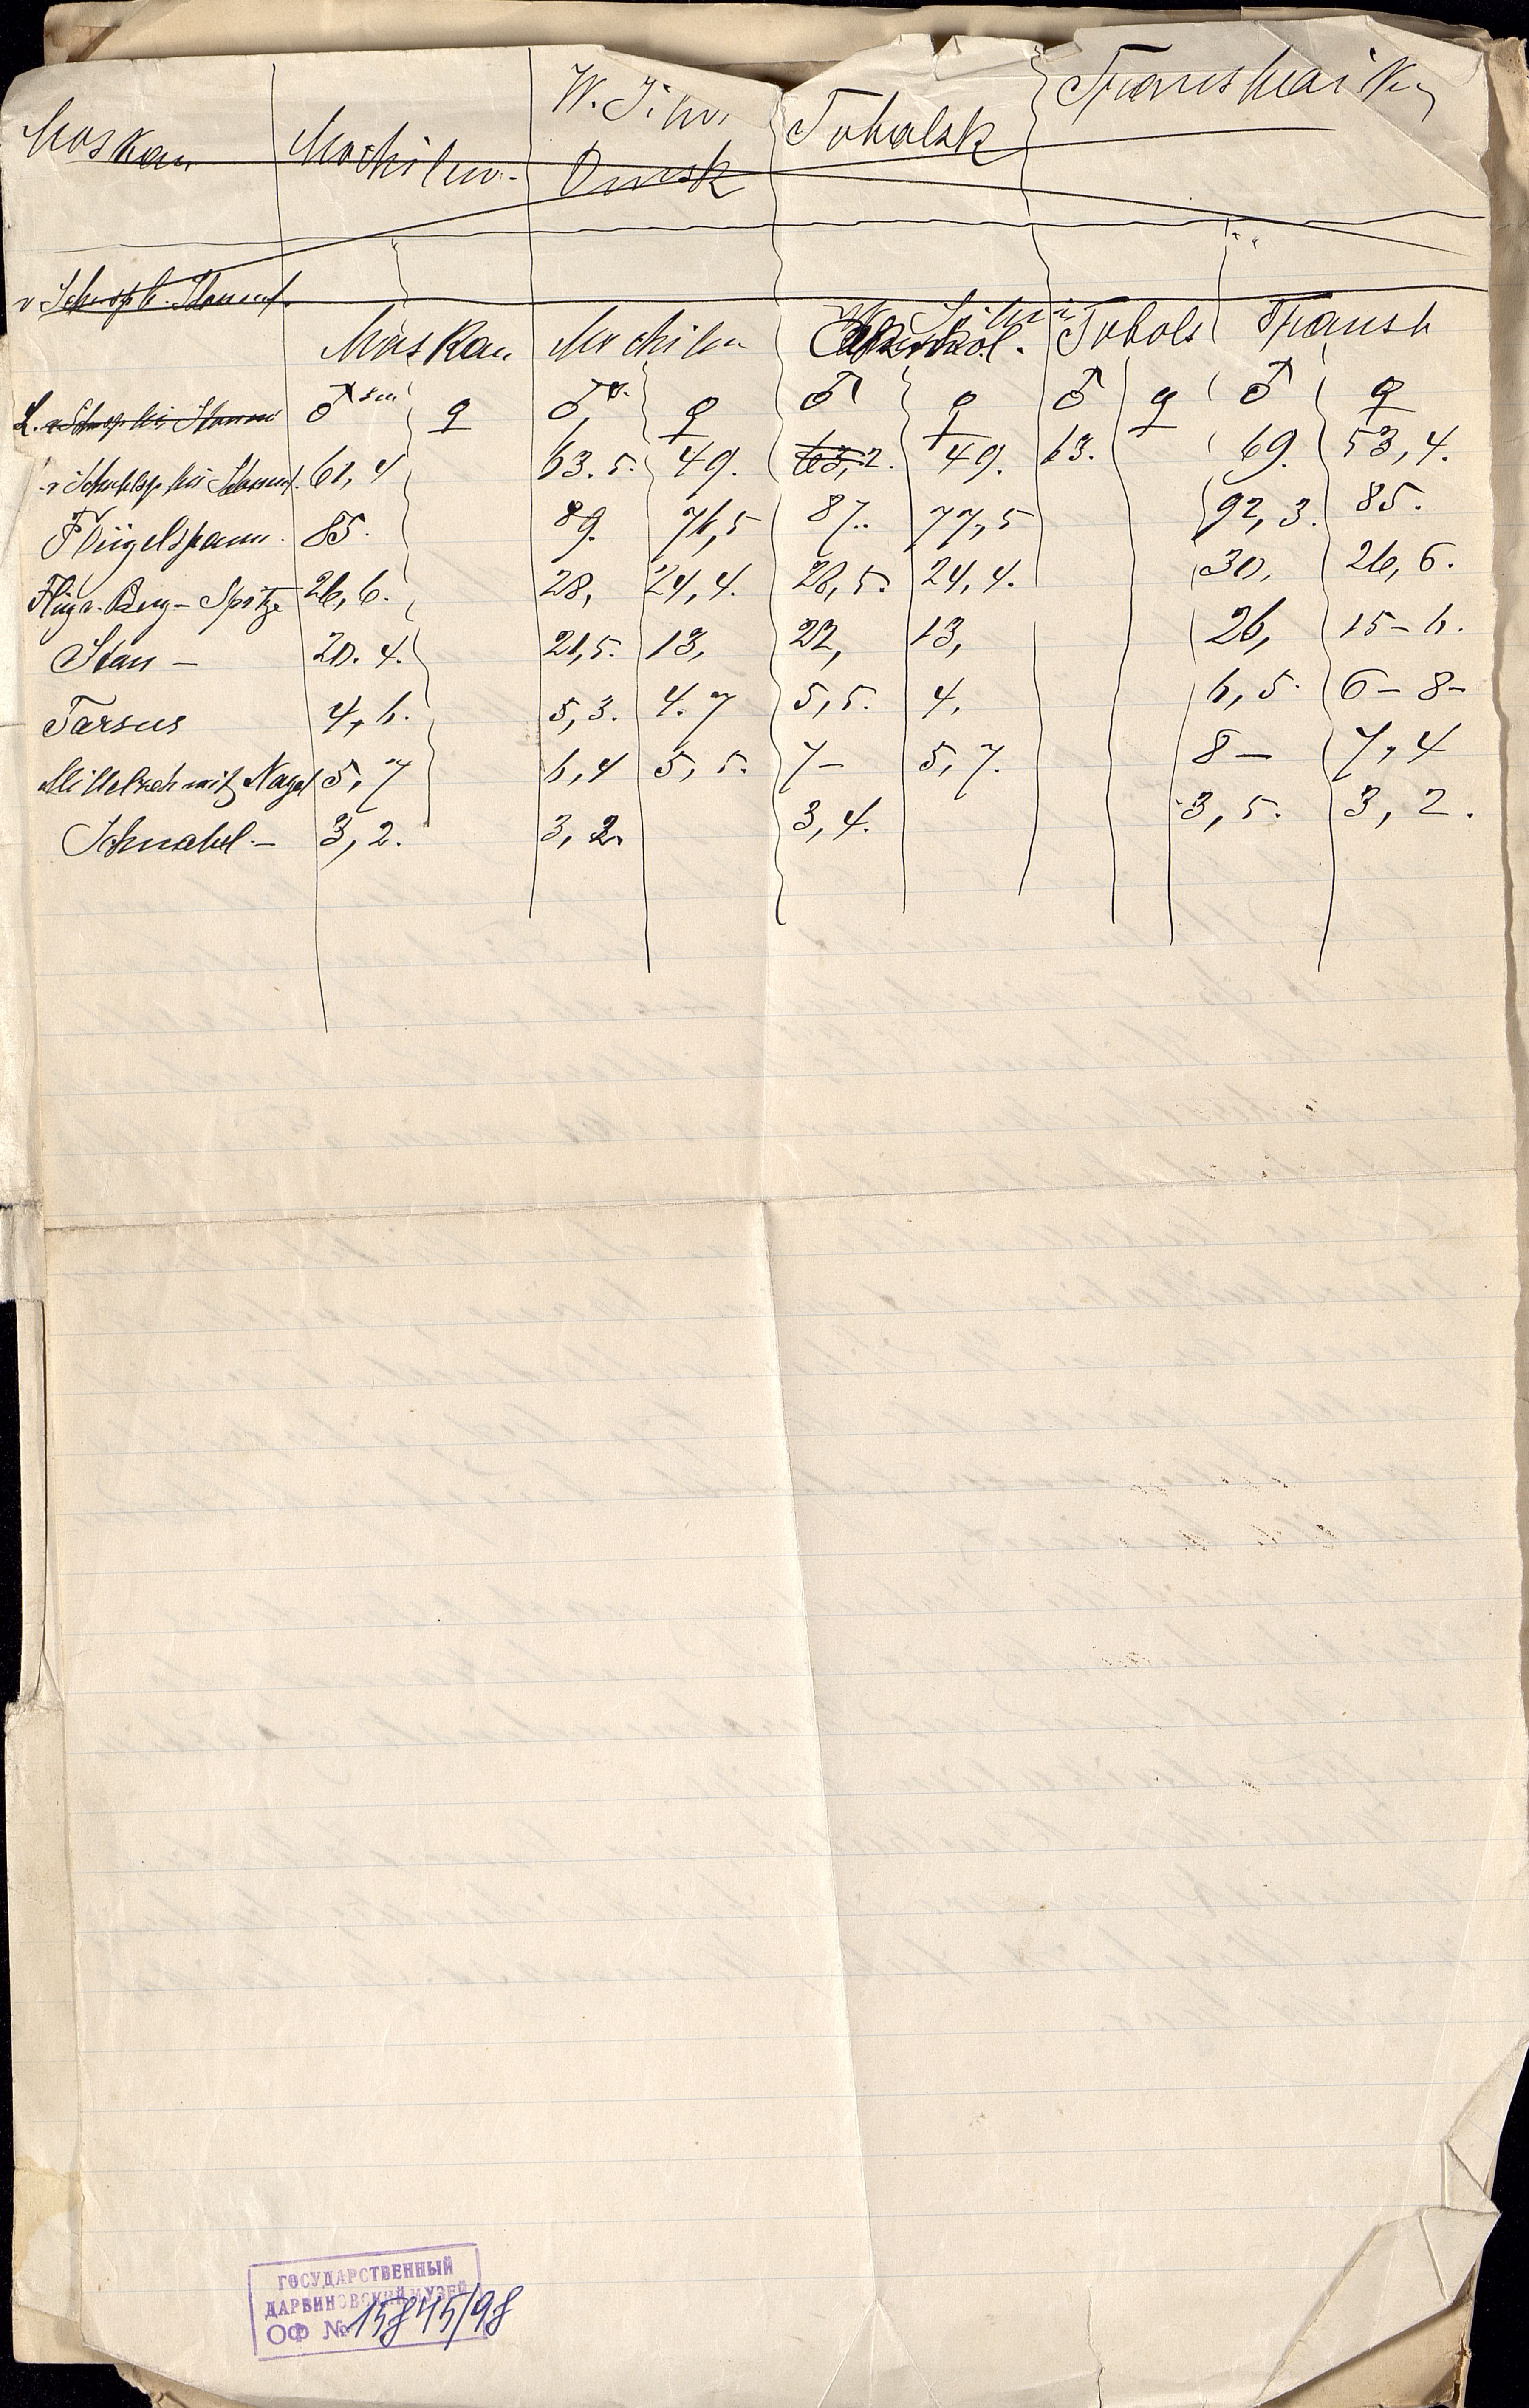 Moskau Mochilew. W. Sibir. Omsk Tobolsk
v Schnsp b. Stanzf.
Moskau Mochilew W. Sibir. Tobols Transb
♂ ♀ ♂ ♀ ♂ ♀ ♂ ♀ ♂ ♀
61,4 63.5. 49. 63,2. 49. 63. 69. 53,4.
Flügelspann. 85. 89. 76,5 87.. 77,5 92,3. 85.
Flüg v. Bug - Spitze 26,6. 28, 24,4. 28,5. 24,4. 30, 26,6.
20.4. 21,5. 13, 22, 13, 26, 15-6.
Tarsus 4,6. 5,3. 4.7 5,5. 4, 6,5. 6-8-
Mittelzeh mit Nagel 5,7 6,4 5,5. 7- 5,7. 8- 7,4
Schnabel.- 3,2. 3,2. 3,4. 3,5. 3,2.
ГОСУДАРСТВЕННЫЙ
ДАРВИНОВСКИЙ МУЗЕЙ
ОФ № 15845/98